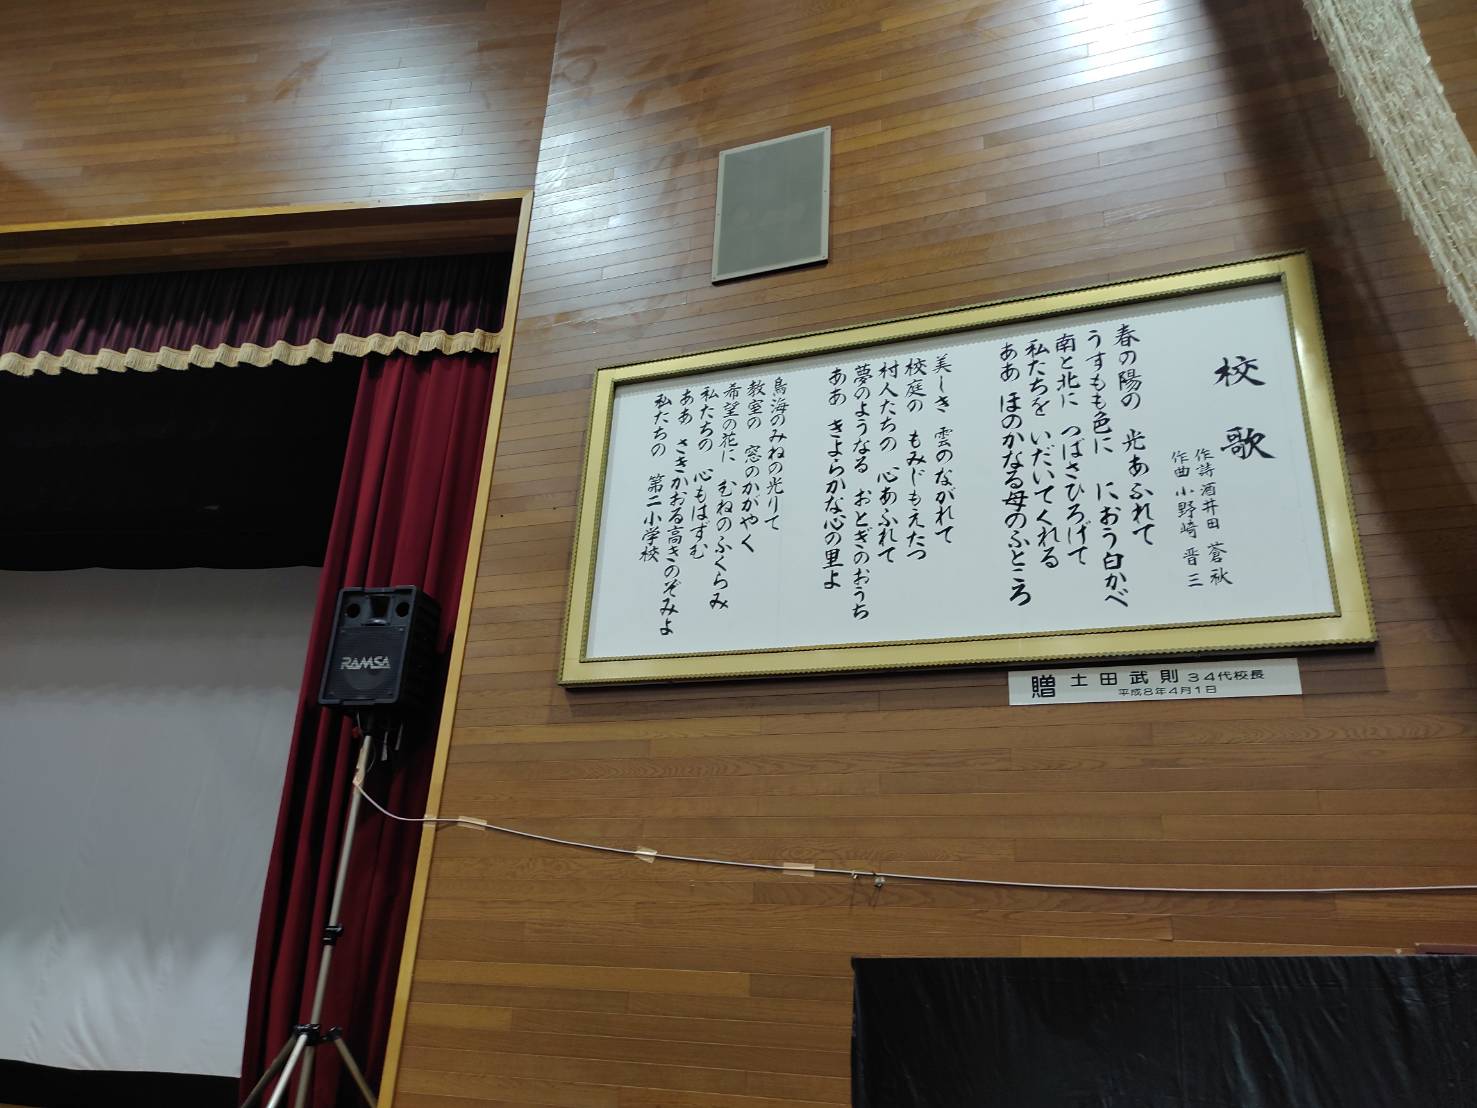 校歌
作詩 酒井田 蒼秋
作曲 小野崎 晋三
春の陽の 光あふれて
うすもも色に におう白かべ
南と北に つばさひろげて
私たちを いだいてくれる
ああ ほのかなる母のふところ
美しき 雲のながれて
校庭の もみじもえたつ
村人たちの 心あふれて
夢のようなる おとぎのおうち
ああ きよらかな心の里よ
鳥海のみねの光りて
教室の 窓のかがやく
希望の花に むねのふくらみ
私たちの 心もはずむ
ああ さきかおる高きのぞみよ
私たちの 第二小学校
贈 土田武則 34代校長
平成8年4月1日
RAMSA